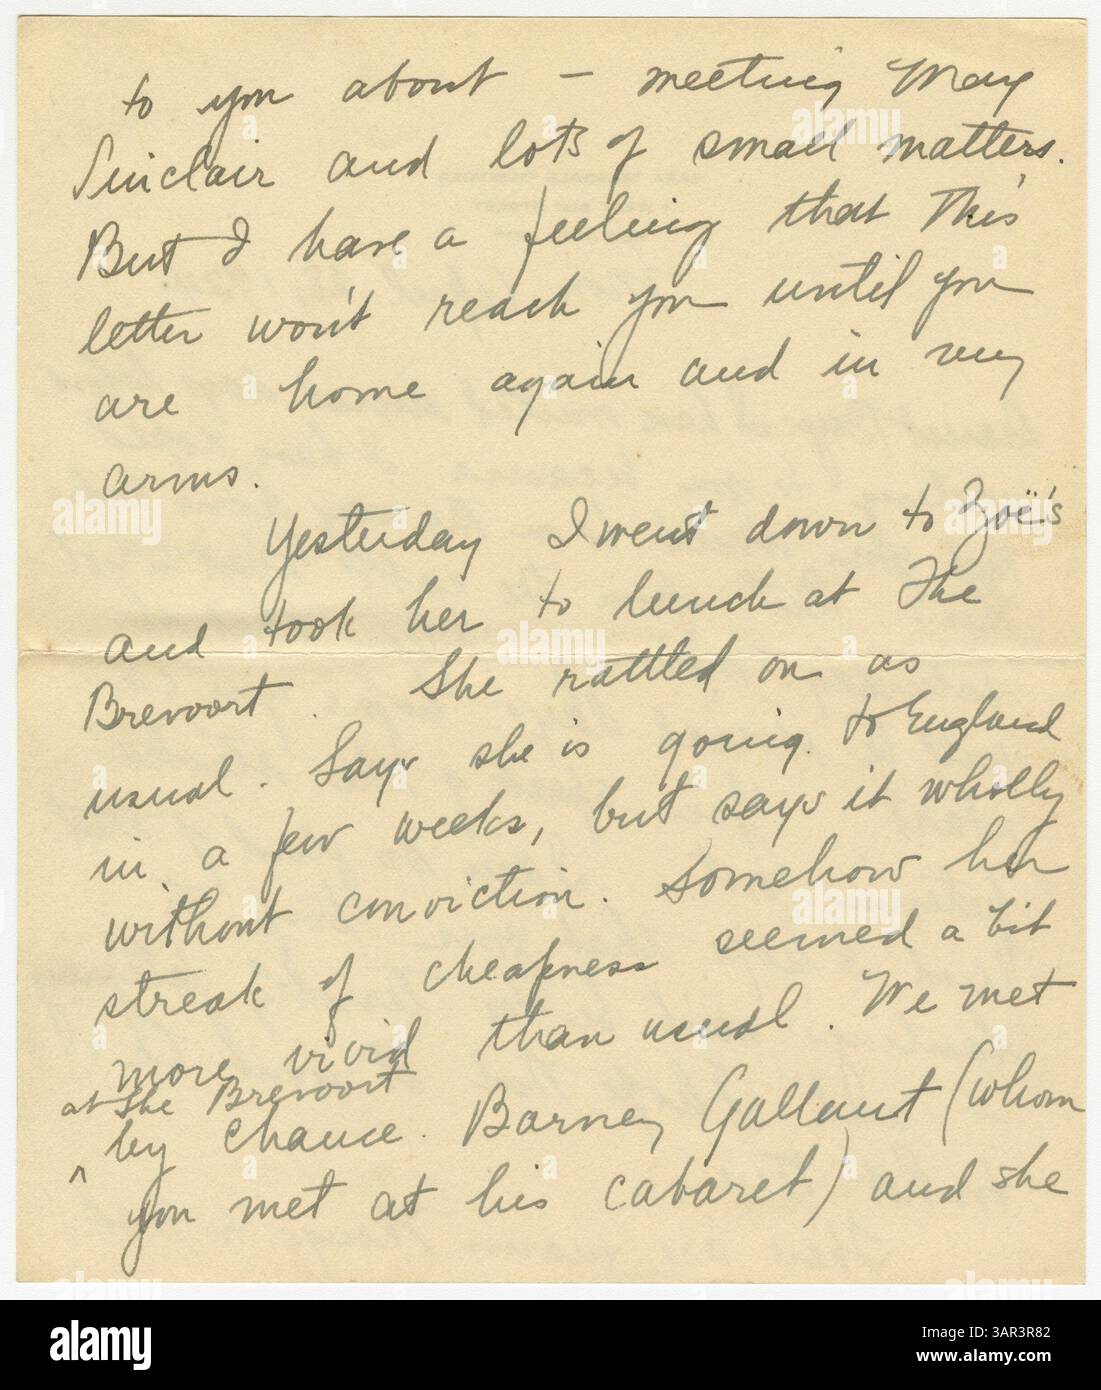 to you about – meeting May
Sinclair and lots of small matters.
But I have a feeling that this
letter won't reach you until you
are home again and in my
arms.
Yesterday I went down to Zoë's
and took her to lunch at The
Brevoort. She rattled on as
usual. Says she is going to England
in a few weeks, but says it wholly
without conviction. Somehow her
streak of cheapness seemed a bit
more vivid than usual. We met
at The Brevoort
^ by chance Barney Gallant (whom
you met at his cabaret) and she
alamy
Image ID: 3AR3R82
www.alamy.com